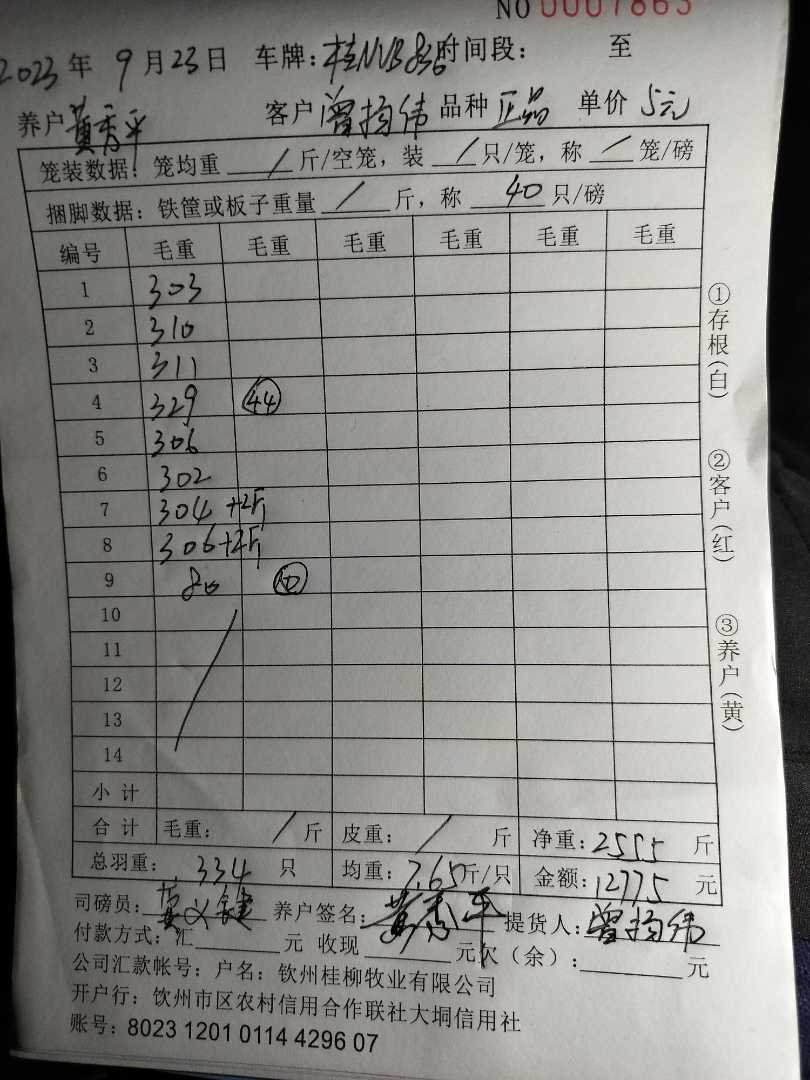 NO 0007863
2023 年 9 月 23 日 车牌: 桂NVB836 时间段: 至
养户 黄秀平 客户 曾扬伟 品种 正品 单价 5元
笼装数据: 笼均重 / 斤/空笼, 装 / 只/笼, 称 / 笼/磅
捆脚数据: 铁筐或板子重量 / 斤, 称 40 只/磅
编号 毛重 毛重 毛重 毛重 毛重 毛重
1 303
2 310
3 311
4 329 44
5 306
6 302
7 304 +2斤
8 306+2斤
9 80 10
10
11
12
13
14
小计
合计 毛重: / 斤 皮重: / 斤 净重: 2555 斤
总羽重: 334 只 均重: 7.65 斤/只 金额: 12775 元
司磅员: 养户签名: 黄秀平 提货人: 曾扬伟
付款方式: 汇 元 收现 元 欠(余): 元
公司汇款帐号: 户名: 钦州桂柳牧业有限公司
开户行: 钦州市区农村信用合作联社大垌信用社
账号: 8023 1201 0114 4296 07
①存根(白)
②客户(红)
③养户(黄)